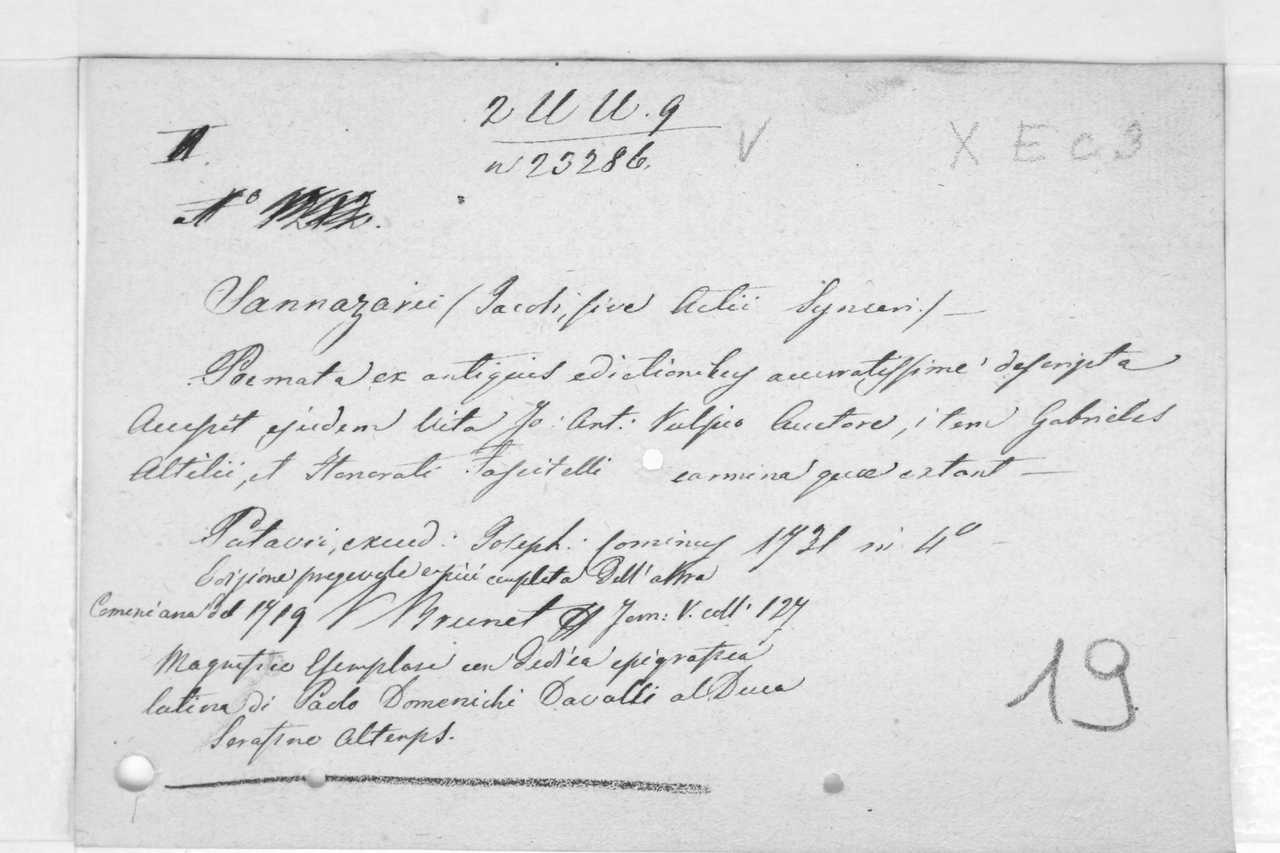 2 U U. 9
n 23286.
V
X E C 3
N°
Sannazarii (Jacobi, sive Actii Synceri) —
Poemata ex antiquis edictionibus accuratissime descripta
Accessit ejusdem Vita Jo: Ant: Vulpio Auctore, item Gabrielis
Altilii, et Honorati Fascitelli carmina quæ extant —
Patavii, excud: Joseph: Cominus 1731 in 4°
Edizione pregevole e più completa dell'altra
Comeniana del 1719 V Brunet Tom: V. coll: 127
Magnifico Esemplare con dedica epigrafica
latina di Paolo Domenichi Davalli al Duca
Serafino Altemps.
19